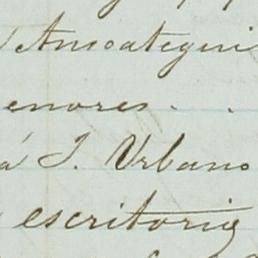 Ansoategui
enores - .
á J. Urbano
escritorio